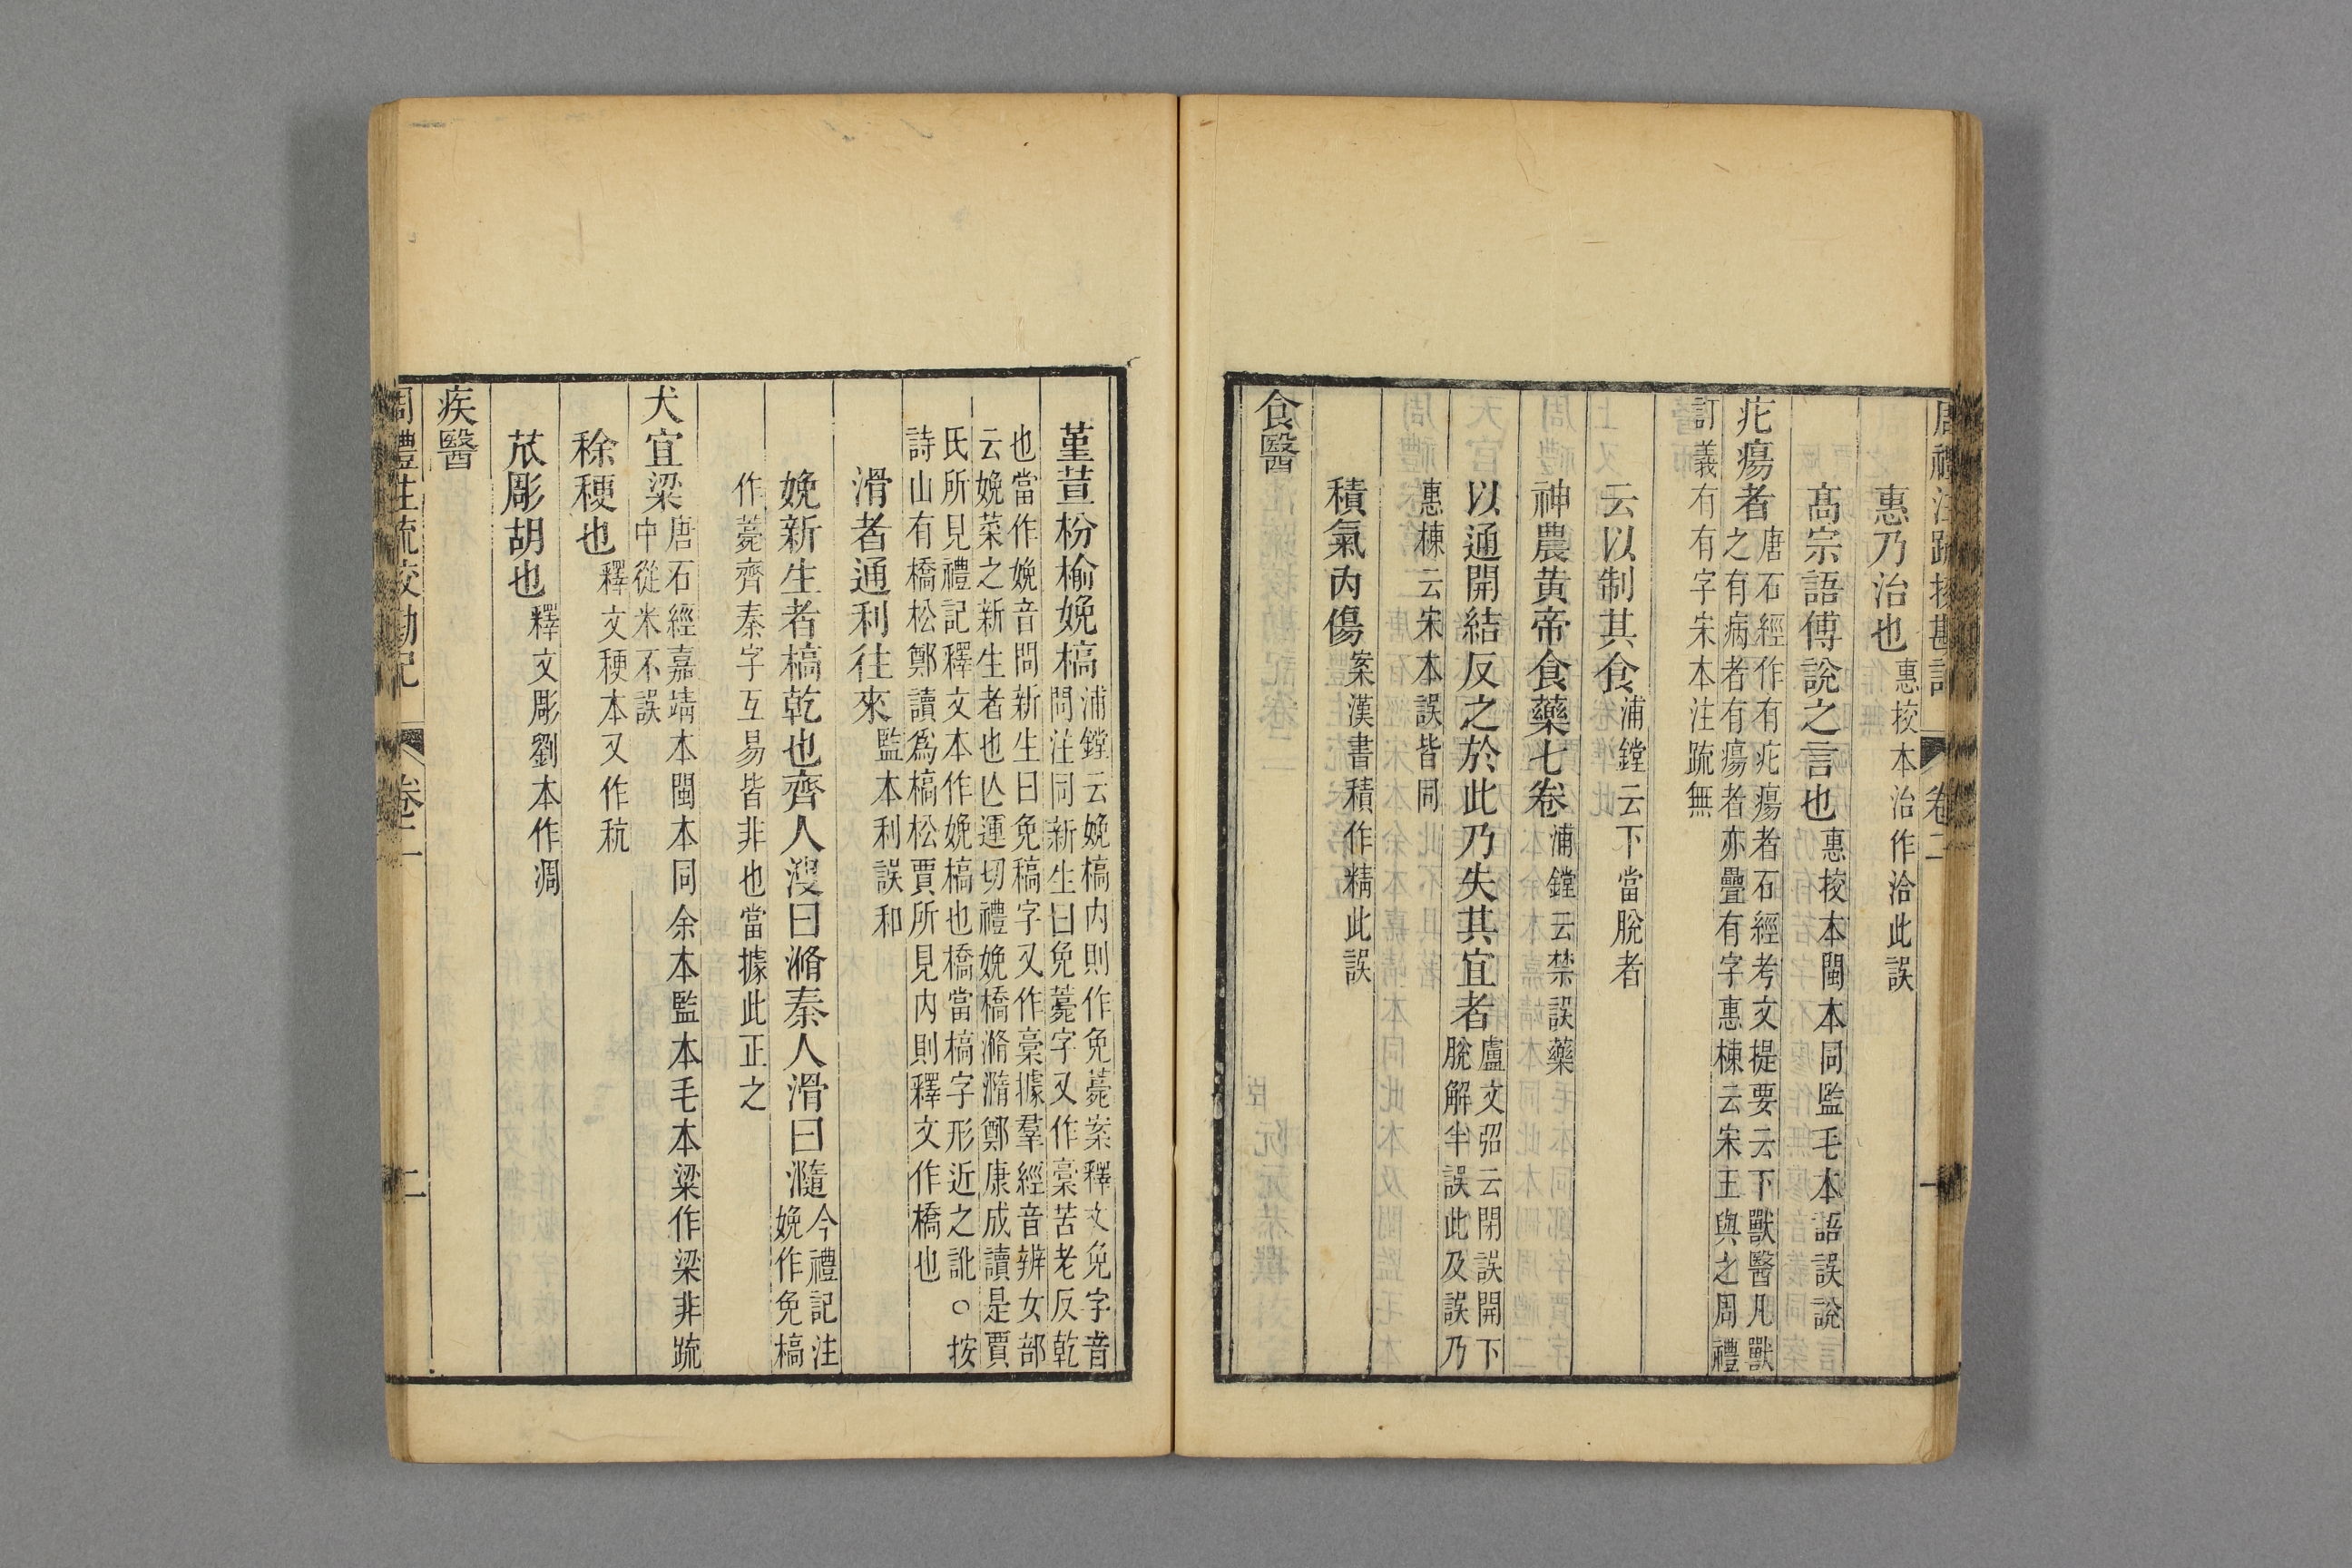 周禮注疏挍勘記 卷二 一
惠乃治也惠挍本治作洽此誤
高宗語傅說之言也惠挍本閩本同監毛本語誤說
疕瘍者唐石經作有疕瘍者石經考文提要云下獸醫凡獸
之有病者有瘍者亦疊有字惠棟云宋王與之周禮
訂義有有字宋本注疏無
云以制其食浦鏜云下當脫者
神農黃帝食藥七卷浦鏜云禁誤藥
以通開結反之於此乃失其宜者盧文弨云閉誤開下
脫解半誤此及誤乃
惠棟云宋本誤皆同
積氣內傷案漢書積作精此誤
食醫
堇荁枌榆娩槁浦鏜云娩槁内則作免薧案釋文免字音
問注同新生曰免薧字又作槀苦老反乾
也當作娩音問新生曰免稿字又作槀據羣經音辨女部
云娩菜之新生者也亾運切禮娩橋滫瀡鄭康成讀是賈
氏所見禮記釋文本作娩槁也橋當槁字形近之訛○按
詩山有橋松鄭讀爲槁松賈所見内則釋文作橋也
滑者通利往來監本利誤和
娩新生者槁乾也齊人溲曰滫秦人滑曰瀡今禮記注
娩作免槁
作薧齊秦字互易皆非也當據此正之
犬宜粱唐石經嘉靖本閩本同余本監本毛本粱作梁非疏
中從米不誤
稌稉也釋文稉本又作秔
苽彫胡也釋文彫劉本作凋
疾醫
周禮注疏校勘記 卷二 二